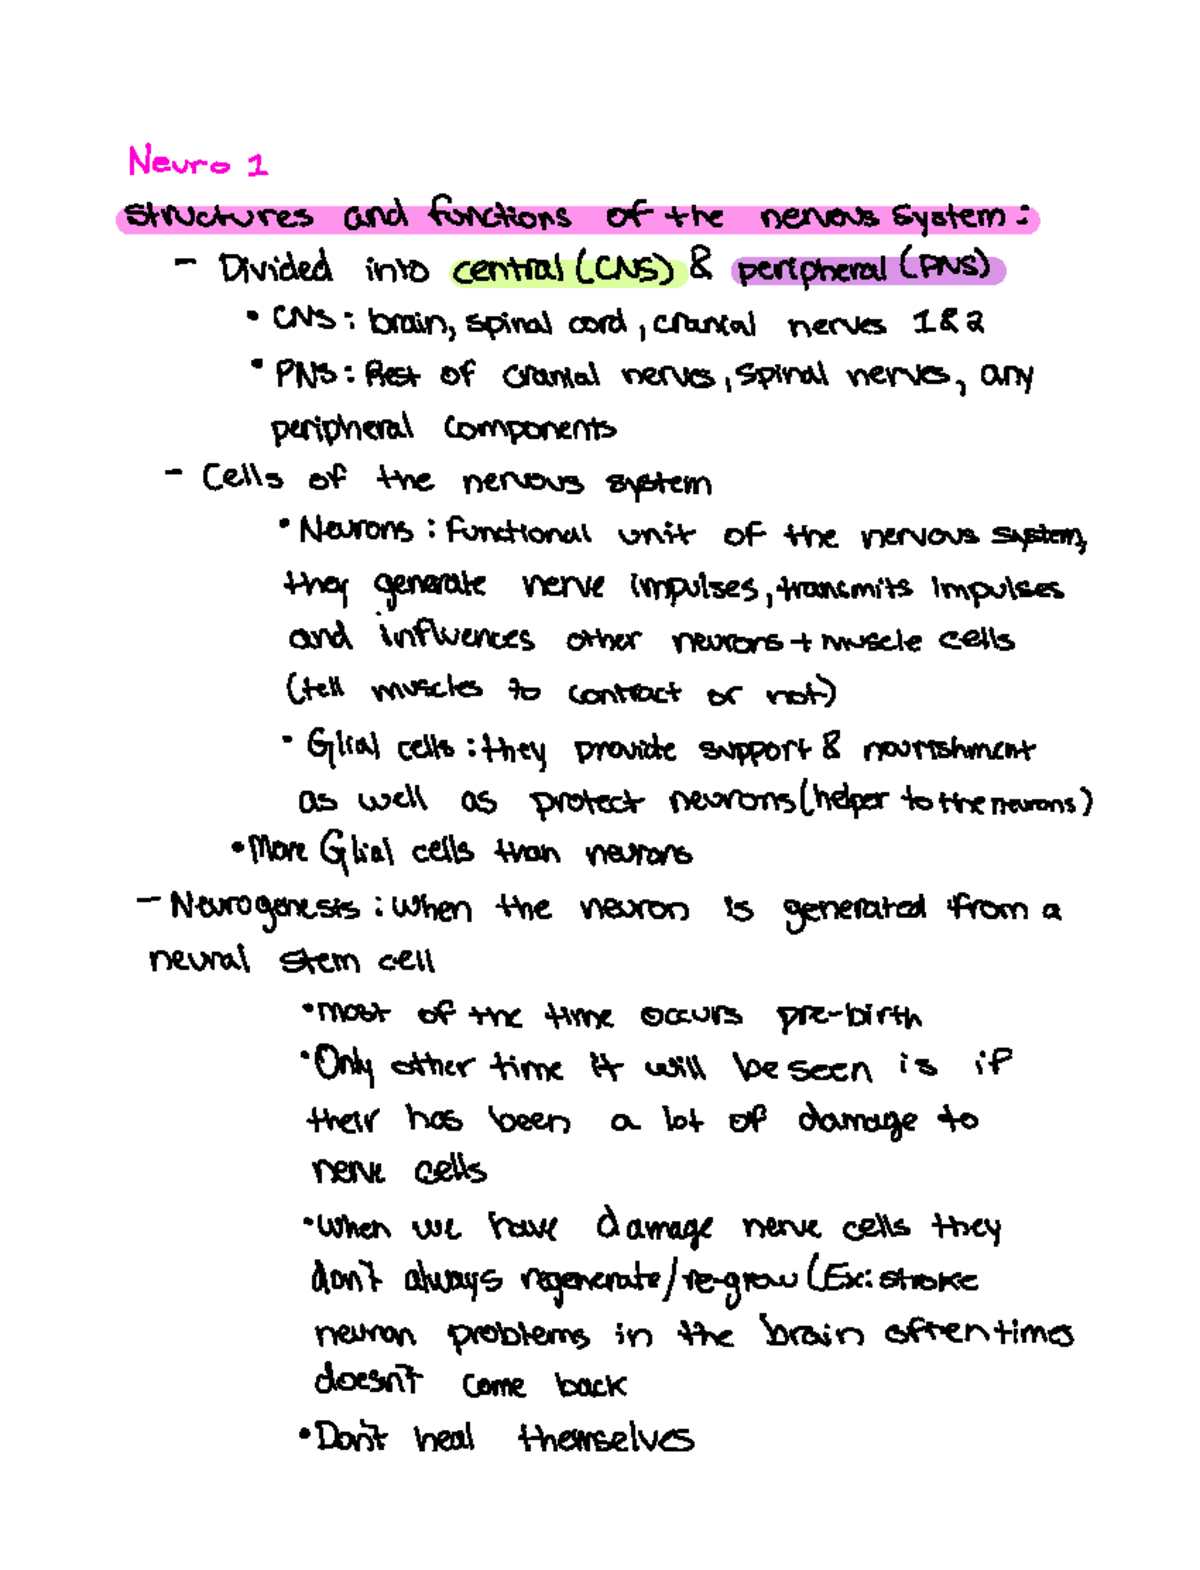 Neuro 1
Structures and functions of the nervous system:
- Divided into central (CNS) & peripheral (PNS)
• CNS: brain, spinal cord, cranial nerves 1 & 2
• PNS: Rest of cranial nerves, spinal nerves, any
peripheral components
- Cells of the nervous system
• Neurons: functional unit of the nervous system,
they generate nerve impulses, transmits impulses
and influences other neurons + muscle cells
(tell muscles to contract or not)
• Glial cells: they provide support & nourishment
as well as protect neurons (helper to the neurons)
• More Glial cells than neurons
- Neurogenesis: when the neuron is generated from a
neural stem cell
• most of the time occurs pre-birth
• Only other time it will be seen is if
their has been a lot of damage to
nerve cells
• When we have damage nerve cells they
don't always regenerate/re-grow (Ex: stroke
neuron problems in the brain often times
doesn't come back
• Don't heal themselves